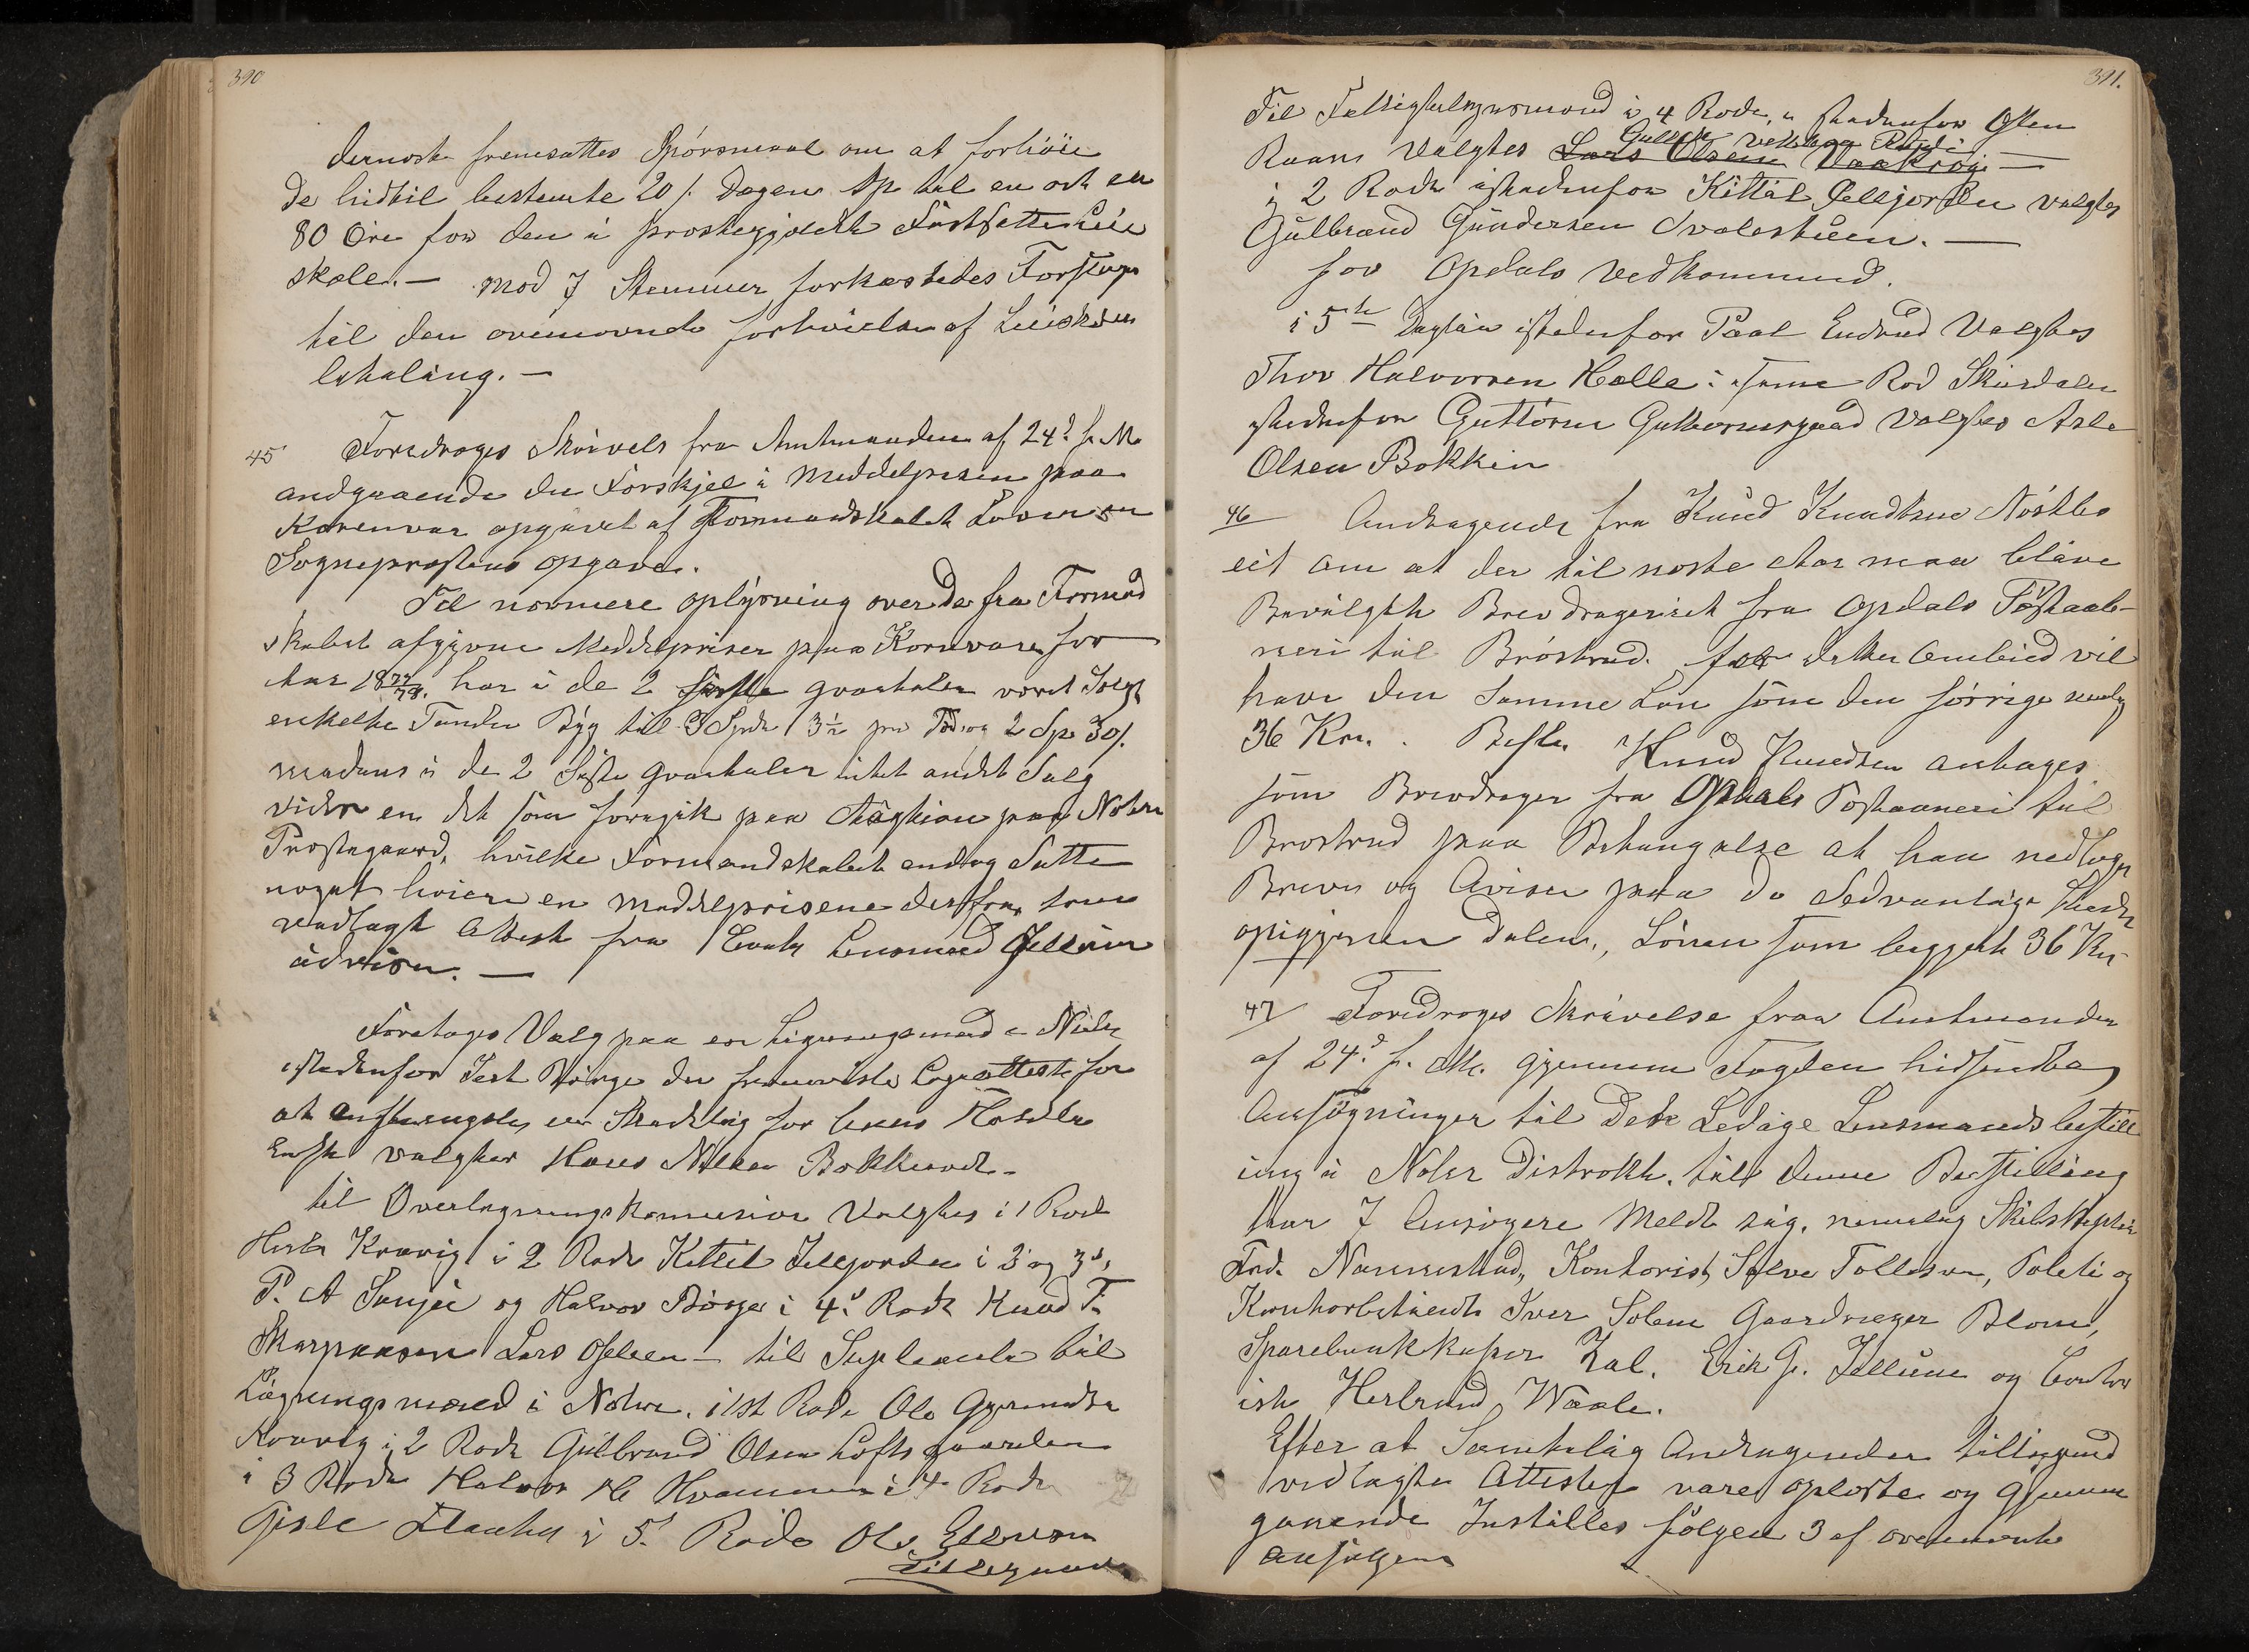 390
dernæst fremsattes Spørsmaal om at forhöie
de hidtil bestemte 20 s. Dagen op til en ort en
80 Øre for den i præstegjeldet
skole. — mod 7 Stemmer forkastedes Forslaget
til den ovennævnte forhöielse af
betaling. —
45 Foredroges Skrivels fra Amtmanden af 24d f. M.
angaaende den Forskjel i Middelprisen paa
Kornvar opgivet af Formandskabet
Sognepræstens opgave.
Til nærmere oplysning over de fra Formand
skabet afgivne Middelpriser paa Kornvare for
Aar 1877/78. har i de 2 første qvartaler været Solgt
enkelte Tønder Byg til 3 Spd 3½ pr Td og 2 Sp 30 s.
medens i de 2 Siste qvartaler intet andet Salg
viden en det som foregik paa Augtion paa Nohre
Præstegaard, hvilke Formandskabet endog Satte
noget høiere en middelprisene derfor, som
vedlagt Attest fra Lensmand Jellum
udviser. —
Foretoges Valg paa en Ligningsmand i
istedenfor
at en for
valgtes Hans Nilsen
til Overligningskomission Valgtes i 1 Rode
Kravig i 2 Rode Kittil Jelljorden i 3 og 3d,
P. A og Halvor Börge i 4d Rode Knud T.
Lars Olsen — til Supleanter til
Ligningsmænd i Nohre. i 1st Rode Ole
Kravig i 2 Rode Gulbrand Olsen Loftsgaarden
i 3 Rode Halvor H i 4 Rode
Gisle i 5. Rode Ole
391.
Til Fattigtilsynsmand i 4 Rode, istedenfor Sten
Raaen Valgtes Lars Olsen
i 2 Rode istedenfor Kittil Jelljorden valgtes
Gulbrand Gundersen Svalestuen. —
for Opdals Vedkommend.
i 5te istedenfor Paal Endrud Valgtes
Thor Halvorsen Hælle i samme Rod Skurdalen
istedenfor Guttorm Guttormsgaard Valgtes Asle
Olsen Bakkin
46 Andragende fra Knud Knudsen
eit om at der til næste Aar maa blive
Bevilgth Brevdrageriet fra Opdals Postaab-
neri til Bröstrud. for dette Arbeid vil
have den Samme Løn som den forrige nemlig
36 Kr. . Beslut Knud Knudsen antages
som Brevdrager fra Opdals Postaaneri til
Brostrud paa Betingelse at han nedlægger
Breve og Aviser paa de Sedvanlige Steder
opigjennem Dalen, Lönnen som begjert 36 Kr
47 Foredroges Skrivelse fra Amtmanden
af 24d f. M. gjennem Fogden hidsendte
Ansøgninger til Det Ledige Lensmandsbestill
ing i Nohre Distrikt. til denne Bestilling
har 7 Ansøgere Meldt sig. nemlig
Fred. Nannestad, Kontorist Salve Tollefsen, Politi og
Kontorbetjendt Iver Solem Gaardbruger Blom,
Sparebankkasser Zal. Erik G. Jellum og Contor
ist Herbrand Waale.
Efter at Samtlig Andragender tilligemed
vedlagte Attester vare oplæste og Gjennem
gaaende Instilles følgen 3 af ovennevnte
Ansøgere